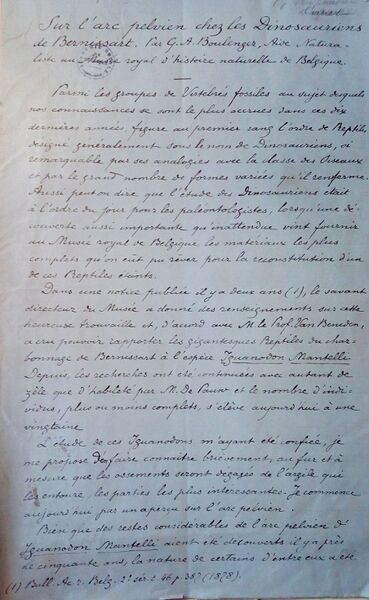 Sur l'arc pelvien chez les Dinosauriens
de Bernissart. Par G. A. Boulenger, Aide Natura-
liste au Musée royal d'histoire naturelle de Belgique.
Parmi les groupes de Vertébrés fossiles au sujet desquels
nos connaissances se sont le plus accrues dans ces dix
dernières années, figure au premier rang l'ordre de Reptiles
désigné généralement sous le nom de Dinosauriens, si
remarquable par ses analogies avec la classe des Oiseaux
et par le grand nombre de formes variées qu'il renferme.
Aussi peut on dire que l'étude des Dinosauriens était
à l'ordre du jour pour les paléontologistes, lorsqu'une dé-
couverte aussi importante qu'inattendue vint fournir
au Musée royal de Belgique les matériaux les plus
complets qu'on eût pu rêver pour la reconstitution d'un
de ces Reptiles éteints.
Dans une notice publiée il y a deux ans (1), le savant
directeur du Musée a donné des renseignements sur cette
heureuse trouvaille et, d'accord avec M. le Prof. Van Beneden,
a cru pouvoir rapporter les gigantesques Reptiles du char-
bonnage de Bernissart à l'espèce Iguanodon Mantelli
Depuis, les recherches ont été continuées avec autant de
zèle que d'habileté par M. De Pauw et le nombre d'indi-
vidus, plus ou moins complets, s'élève aujourd'hui à une
vingtaine
L'étude de ces Iguanodons m'ayant été confiée, je
me propose de faire connaître brièvement, au fur et à
mesure que les ossements seront dégagés de l'argile qui
les entoure, les parties les plus intéressantes. Je commence
aujourd'hui par un aperçu sur l'arc pelvien.
Bien que des restes considérables de l'arc pelvien d'
Iguanodon Mantelli aient été découverts il y a près
de cinquante ans, la nature de certains d'entre eux a été
(1) Bull. Ac. r. Belg. 2e sér. t. 46 p. 387 (1878).